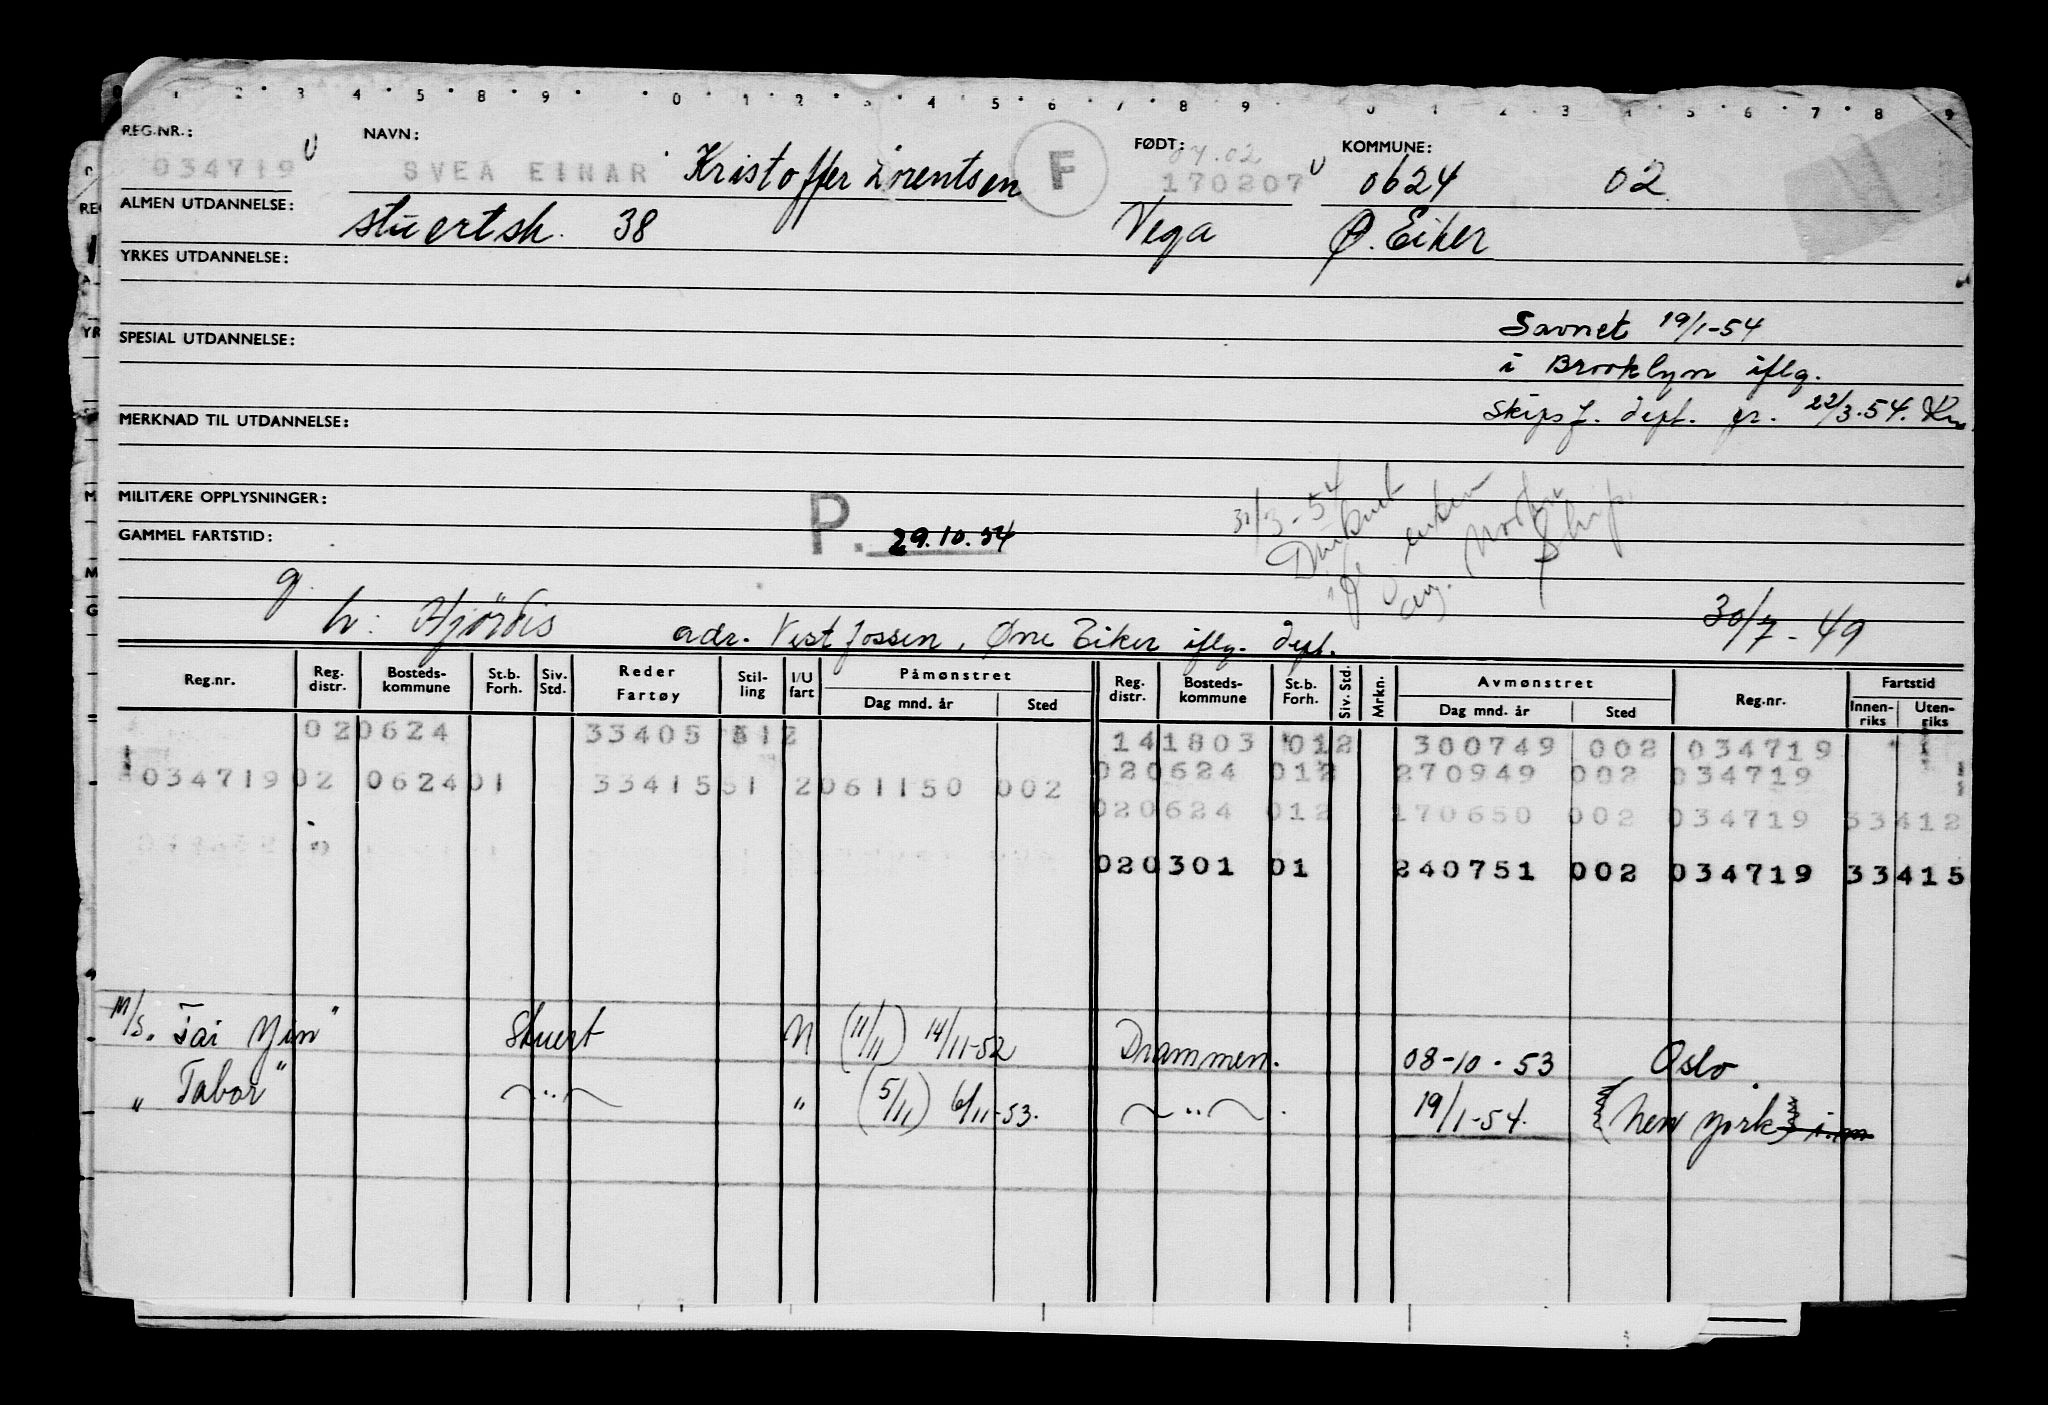 1 2 3 4 5 8 9 0 1 2 3 4 5 6 7 8 9 0 1 2 3 4 5 6 7 8 9
REG.NR.: NAVN: FØDT: KOMMUNE:
07.02
034719 U SVEA EINAR Kristoffer Lorentsen F 170207 U 0624 02
ALMEN UTDANNELSE: stuertsk. 38 Vega Ø. Eiker
YRKES UTDANNELSE:
Savnet 19/1-54
SPESIAL UTDANNELSE:
i Brooklyn iflg.
Skipsf. dept. gr. 22/3.54. Kn
MERKNAD TIL UTDANNELSE:
MILITÆRE OPPLYSNINGER: P. 31/3-54
GAMMEL FARTSTID: 29.10.54 Druknet
Ship.
g.
h: Hjördis adr. Vestfossen, Øvre Eiker iflg. dept. 30/7-49
Reg.nr. Reg. distr. Bosteds-kommune St.b. Forh. Siv. Std. Reder Fartøy Stil-ling I/U fart Påmønstret Dag mnd. år Sted Reg. distr. Bosteds-kommune St.b. Forh. Siv. Std. Mrkn. Avmønstret Dag mnd. år Sted Reg.nr. Fartstid Innen-riks Uten-riks
020624 33405 512 141803 012 300749 002 034719
034719 02 062401 33415 51 2061150 002 020624 012 270949 002 034719
020624 012 170650 002 034719 33412
020301 01 240751 002 034719 33415
M/S. "Tai Yin" Stuert N (11/11) 14/11-52 Drammen. 08-10-53 Oslo.
" Tabor" —"— " (5/11) 6/11-53. —"—. 19/1-54. {New York} i.m